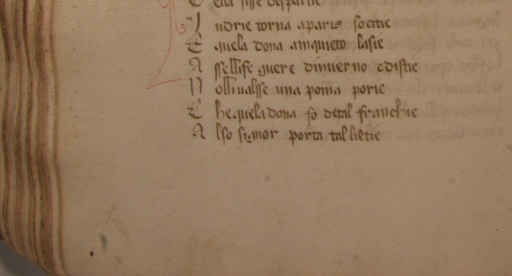 E ella sise despartie
A ndrie torna aparis so citie
E quela dona amquieto lasie
A ssellife guere dinuerno edistie
N ollivalsse una poma porie
C hequela dona fo detal franchie
A lso signor porta tal lietie